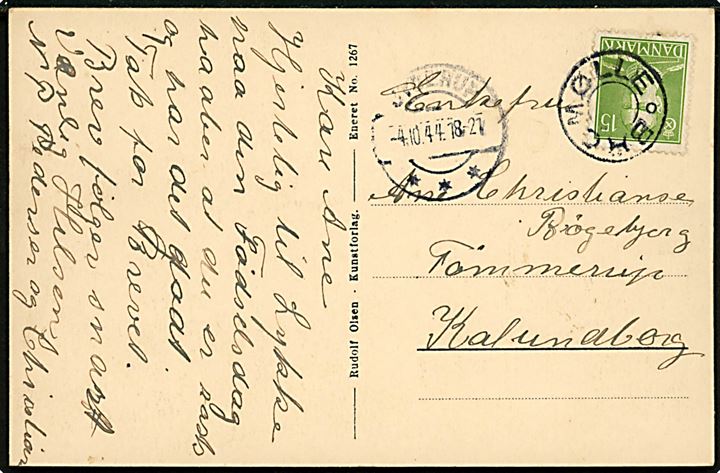 Kære Ane
Hjertelig til Lykke
paa din Födselsdag
haaber at du er rask
og har det godt
Tak for Brevet.
Brev følger snart
Venlig Hilsen
N P Pedersen og Christian
Rudolf Olsen . Kunstforlag. Eneret No. 1267
-4.10.44.18-21
MØLLE
DANMARK
15
Enkefru
Ane Christianse
Bögebjerg
Tömmerup
Kalundborg